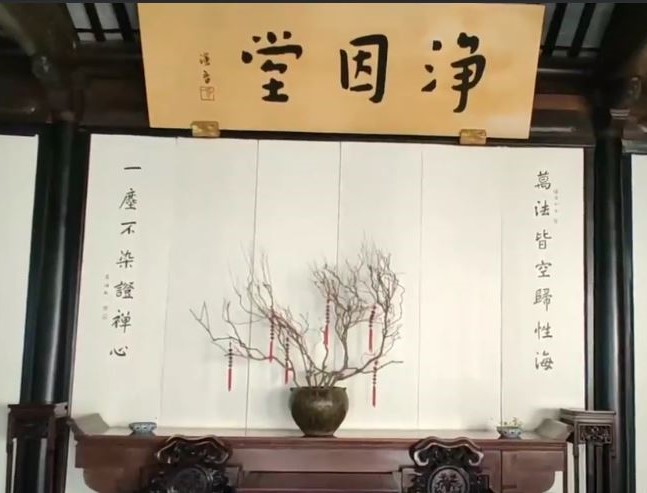 淨因堂
萬法皆空歸性海
一塵不染證禪心